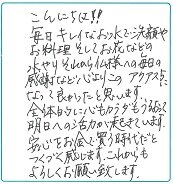 こんにちは!!
毎日キレイなお水で洗顔や
お料理 そしてお花などの
水やり それから仏様への毎日の
感謝など心より この アクアさんに
なって良かったと思います。
全体的に心もカラダもうるおって
明日への活力が出てきています。
安心もお金で買う時代だと
つくづく感じます。これからも
よろしくお願い致します。